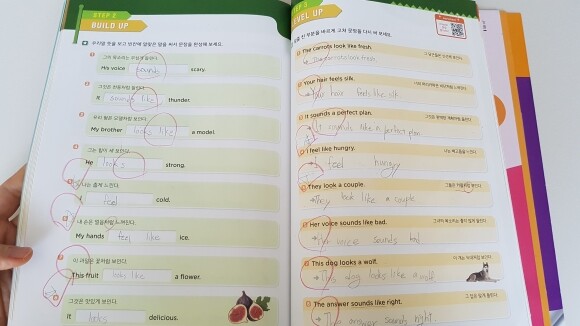 STEP 2
BUILD UP
우리말 뜻을 보고 빈칸에 알맞은 말을 써서 문장을 완성해 보세요.
His voice sounds scary.
It sounds like thunder.
My brother looks like a model.
He looks strong.
나는 춥게 느낀다.
I feel cold.
내 손은 얼음처럼 느낀다.
My hands feel like ice.
이 과일은 꽃처럼 보인다.
This fruit looks like a flower.
그것은 맛있게 보인다.
It looks delicious.
STEP 3
LEVEL UP
친 부분을 바르게 고쳐 문장을 다시 써 보세요.
The carrots look like fresh.
The carrots look fresh
Your hair feels silk.
Your hair feels like silk
It sounds a perfect plan.
It sounds like a perfect plan
I feel like hungry.
I feel hungry
They look a couple.
They look like a couple
Her voice sounds like bad.
Her voice sounds bad
This dog looks a wolf.
This dog looks like a wolf
The answer sounds like right.
The answer sounds right.